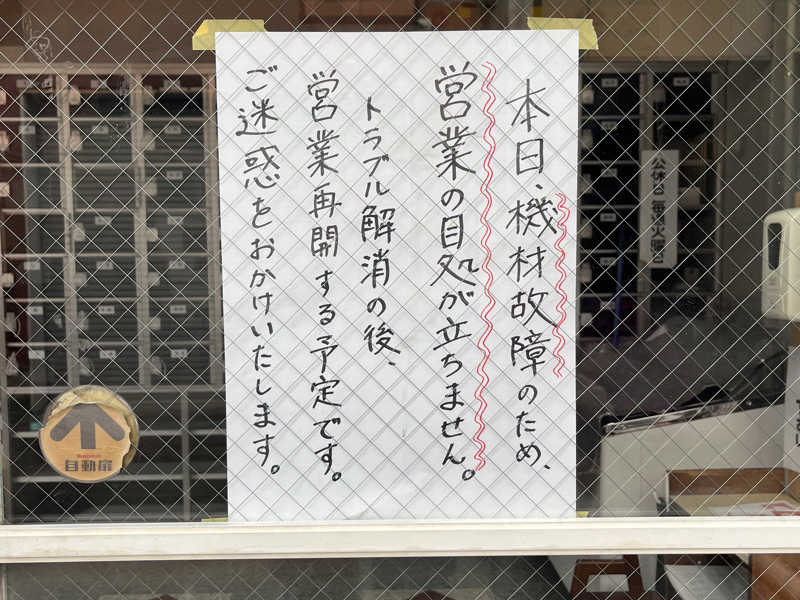 本日、機材故障のため、
営業の目処が立ちません。
トラブル解消の後、
営業再開する予定です。
ご迷惑をおかけいたします。
自動扉